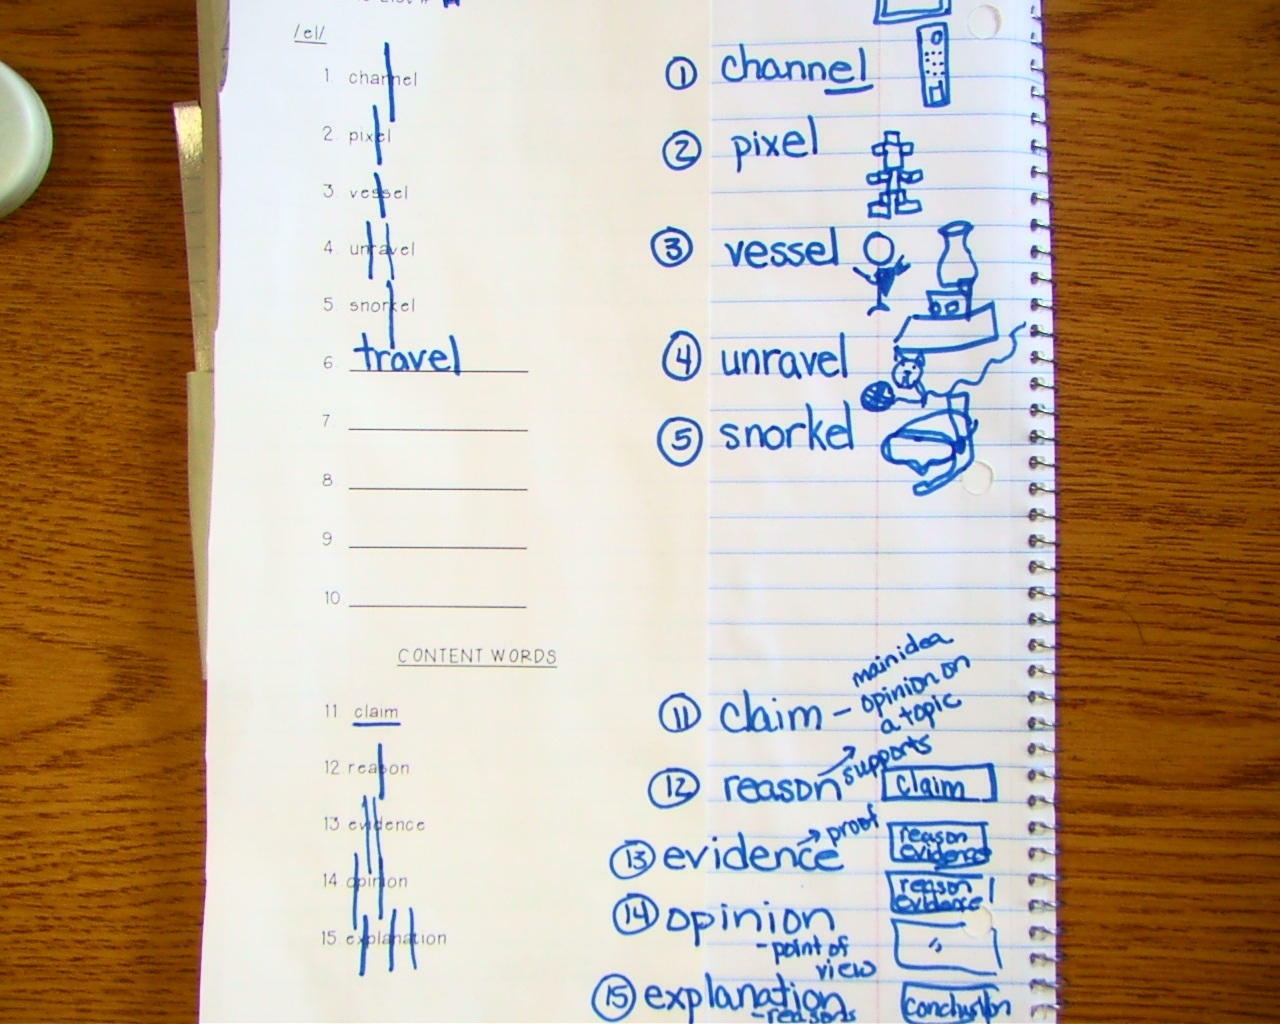 /el/
1. channel
2. pixel
3. vessel
4. unravel
5. snorkel
6. travel
7
8.
9
10.
CONTENT WORDS
11. claim
12 reason
13. evidence
14. opinion
15. explanation
1 channel
2 pixel
3 vessel
4 unravel
5 snorkel
11 claim - main idea
opinion on
a topic
12 reason supports
claim
13 evidence proof
reason
evidence
14 opinion
reason
evidence
- point of
view
15 explanation
- reasons
conclusion